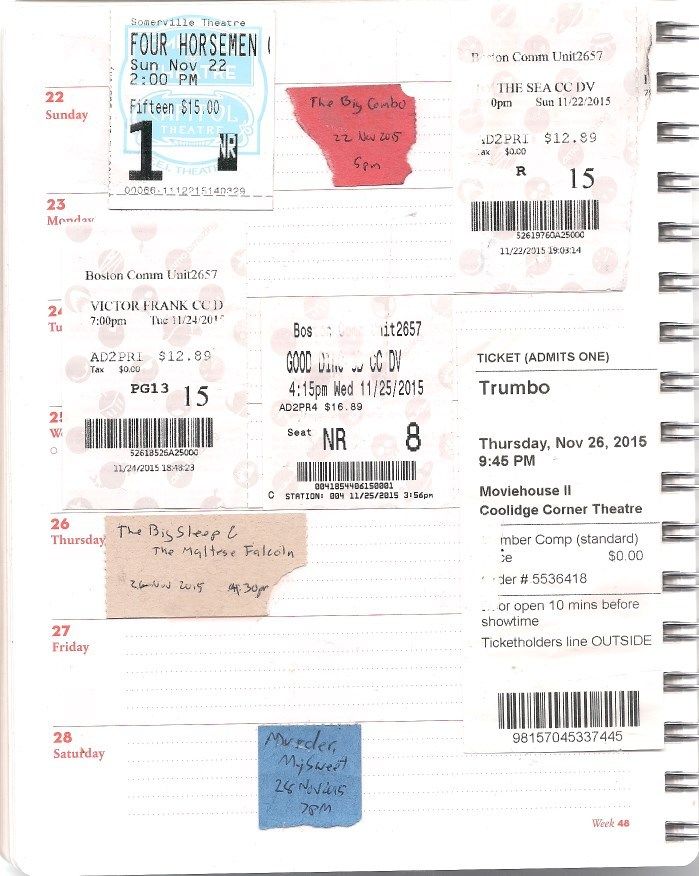 22
Sunday
Somerville Theatre
FOUR HORSEMEN (
Sun Nov 22
2:00 PM
Fifteen $15.00
1 NR
00066-1112215140329
The Big Combo
22 Nov 2015
5pm
Boston Comm Unit2657
THE SEA CC DV
0pm Sun 11/22/2015
AD2PRI $12.89
ax $0.00
R 15
52619760A25000
11/22/2015 19:03:14
23
Monday
24
Tu
Boston Comm Unit2657
VICTOR FRANK CC D
7:00pm Tue 11/24/201
AD2PRI $12.89
Tax $0.00
PG13 15
52618526A25000
11/24/2015 18:48:23
25
W
Bos Comm nit2657
GOOD DINO CC DV
4:15pm Wed 11/25/2015
AD2PR4 $16.89
Seat NR 8
0041854406150001
C STATION: 004 11/25/2015 3:56pm
TICKET (ADMITS ONE)
Trumbo
Thursday, Nov 26, 2015
9:45 PM
Moviehouse II
Coolidge Corner Theatre
mber Comp (standard)
ce $0.00
der # 5536418
or open 10 mins before
showtime
Ticketholders line OUTSIDE
98157045337445
26
Thursday
The Big Sleep &
The Maltese Falcoln
26 Nov 2015 4:30pm
27
Friday
28
Saturday
Murder,
My Sweet
28 Nov 2015
7PM
Week 48